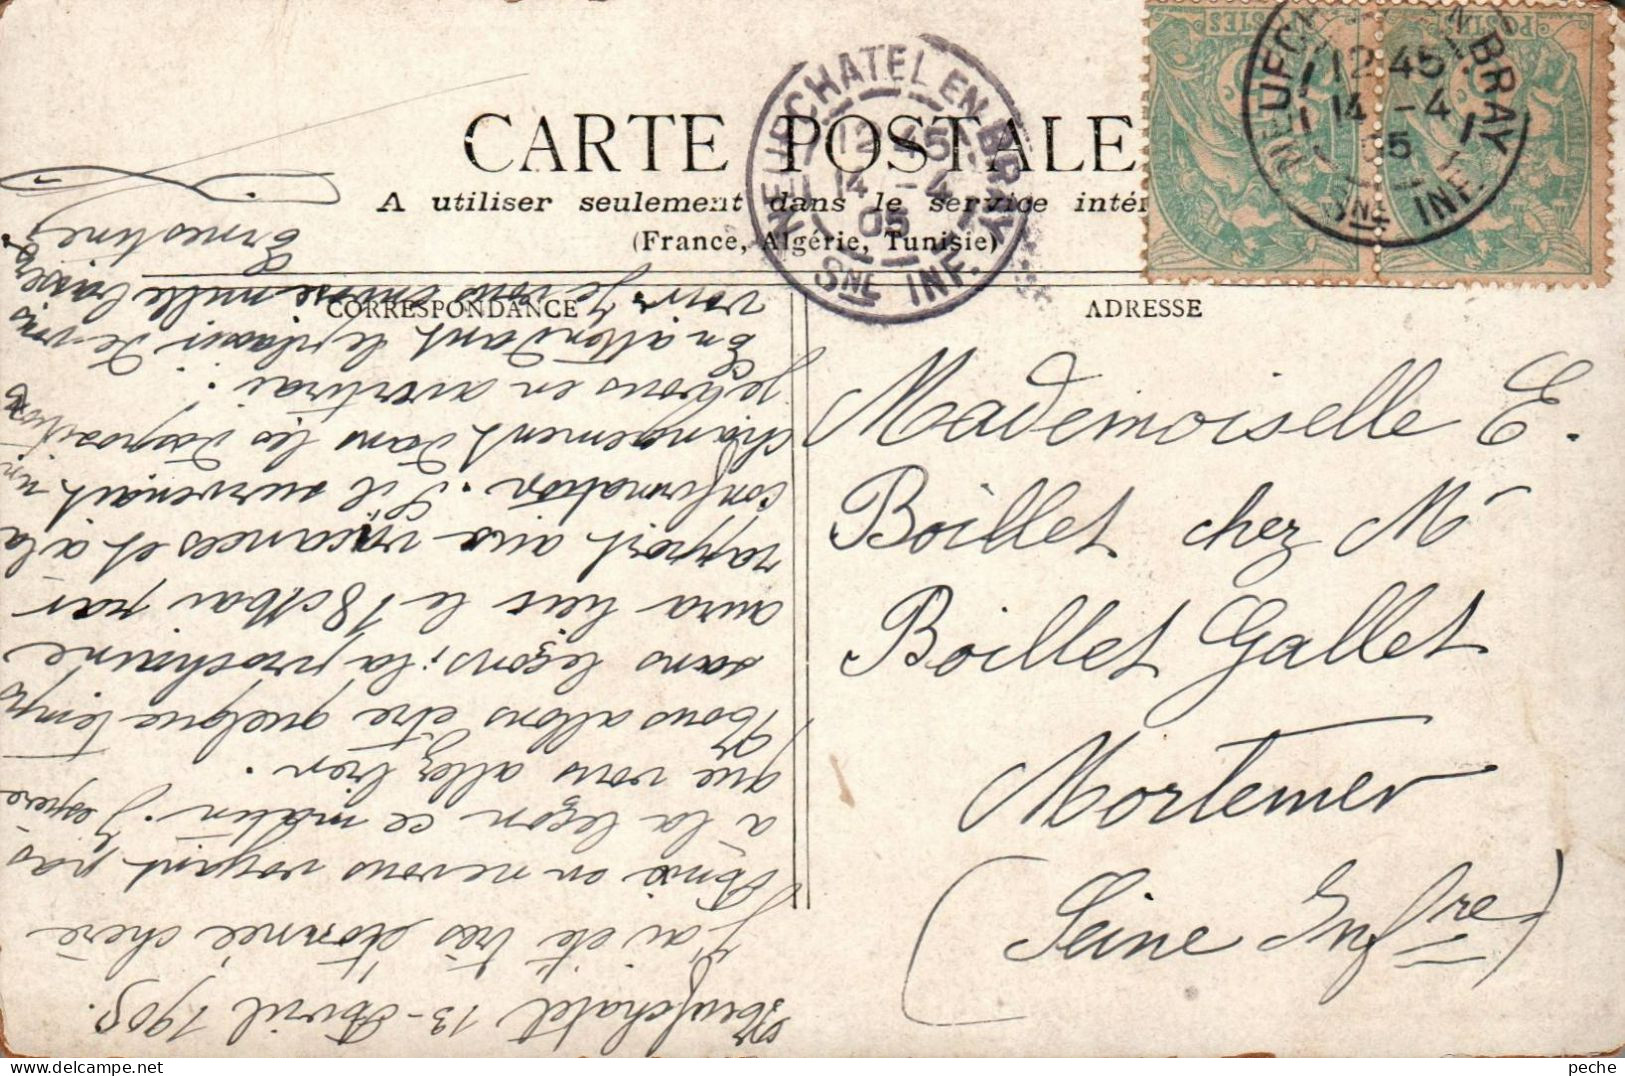 CARTE POSTALE
A utiliser seulement dans le service intér
(France, Algérie, Tunisie)
CORRESPONDANCE
ADRESSE
NEUFCHATEL EN BRAY
12 45
14 -4
05
SNE INF.
POSTES
POSTES
NEUFCH EN BRAY
12 45
14 -4
05
SNE INF.
Mademoiselle E.
Boillet chez Mr
Boillet Gallet
Mortemer
(Seine Infre)
Neufchatel 13 - Avril 1905.
J'ai été très étonnée chère
Amie en ne vous voyant pas
à la leçon ce matin. J'espère
que vous allez bien.
Nous allons être quelque temps
sans leçons; la prochaine
aura lieu le 18 Mai par
rapport aux vacances et à la
confirmation. S'il survenait un
changement dans les dispositions
je vous en avertirai.
En attendant le plaisir de vous
voir je vous envoie mille baisers
Ernestine
peche